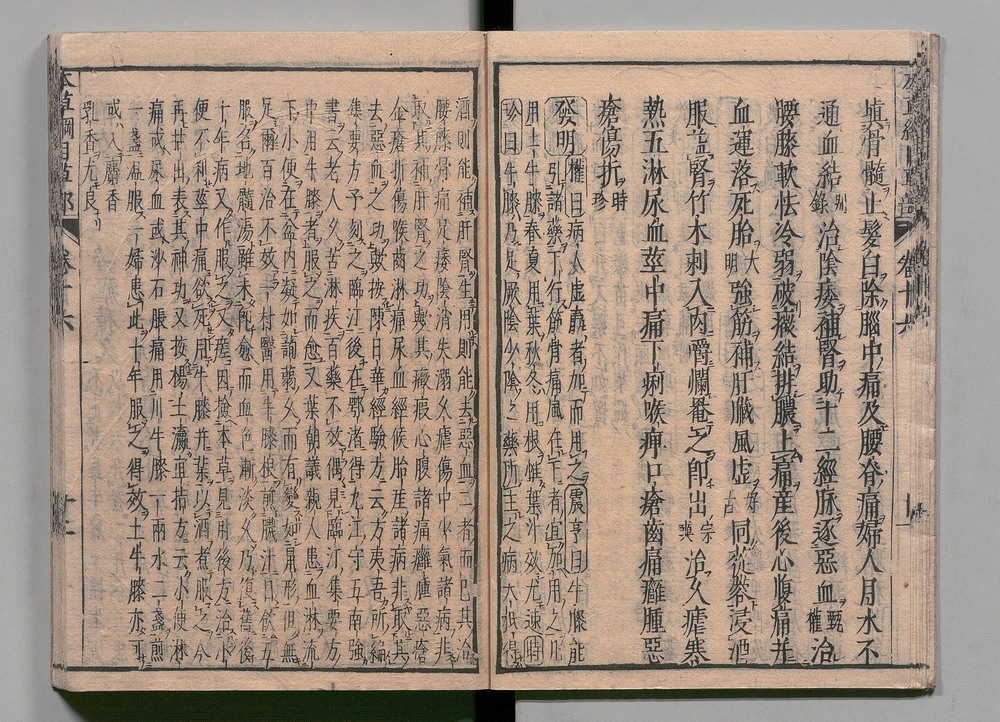 填骨髓止髮白除腦中痛及腰脊痛婦人月水不
通血結別錄治陰痿補腎助十二經脈逐惡血甄權治
腰膝軟怯冷弱破癥結排膿止痛產後心腹痛并
血運落死胎大明強筋補肝臟風虛好古同蓯蓉浸酒
服益腎竹木刺入肉嚼爛罨之即出宗奭治久瘧寒
熱五淋尿血莖中痛下痢喉痹口瘡齒痛癰腫惡
瘡傷折時珍
發明權曰病人虛羸者加而用之震亨曰牛膝能
引諸藥下行筋骨痛風在下者宜加用之凡
用土牛膝春夏用葉秋冬用根惟葉汁效尤速時
珍曰牛膝乃足厥陰少陰之藥所主之病大抵得
酒則能補肝腎生用則能去惡血二者而已其治
腰膝骨痛足痿陰消失溺久瘧傷中少氣諸病非
取其補肝腎之功歟其癥瘕心腹諸痛癰腫惡瘡
金瘡折傷喉齒淋痛尿血經候胎產諸病非取其
去惡血之功歟按陳日華經驗方云方夷吾所編
集要方予刻之臨汀後在鄂渚得九江守王南強
書云老人久苦淋疾百藥不效偶見臨汀集要方
中用牛膝者服之而愈又葉朝議親人患血淋流
下小便在盆內凝如蒟蒻久而有變如鼠形但無
足爾百治不效一村醫用牛膝根煎濃汁日飲五
服名地髓湯雖未即愈而血色漸淡久乃復舊後
十年病又作服之又瘥因檢本草見肘後方治小
便不利莖中痛欲死用牛膝并葉以酒煮服之今
再拈出表其神功又按楊士瀛直指方云小便淋
痛或尿血或沙石脹痛用川牛膝一兩水二盞煎
一盞溫服一婦患此十年服之得效土牛膝亦可
或入麝香
乳香尤良
本草綱目草部 卷十六